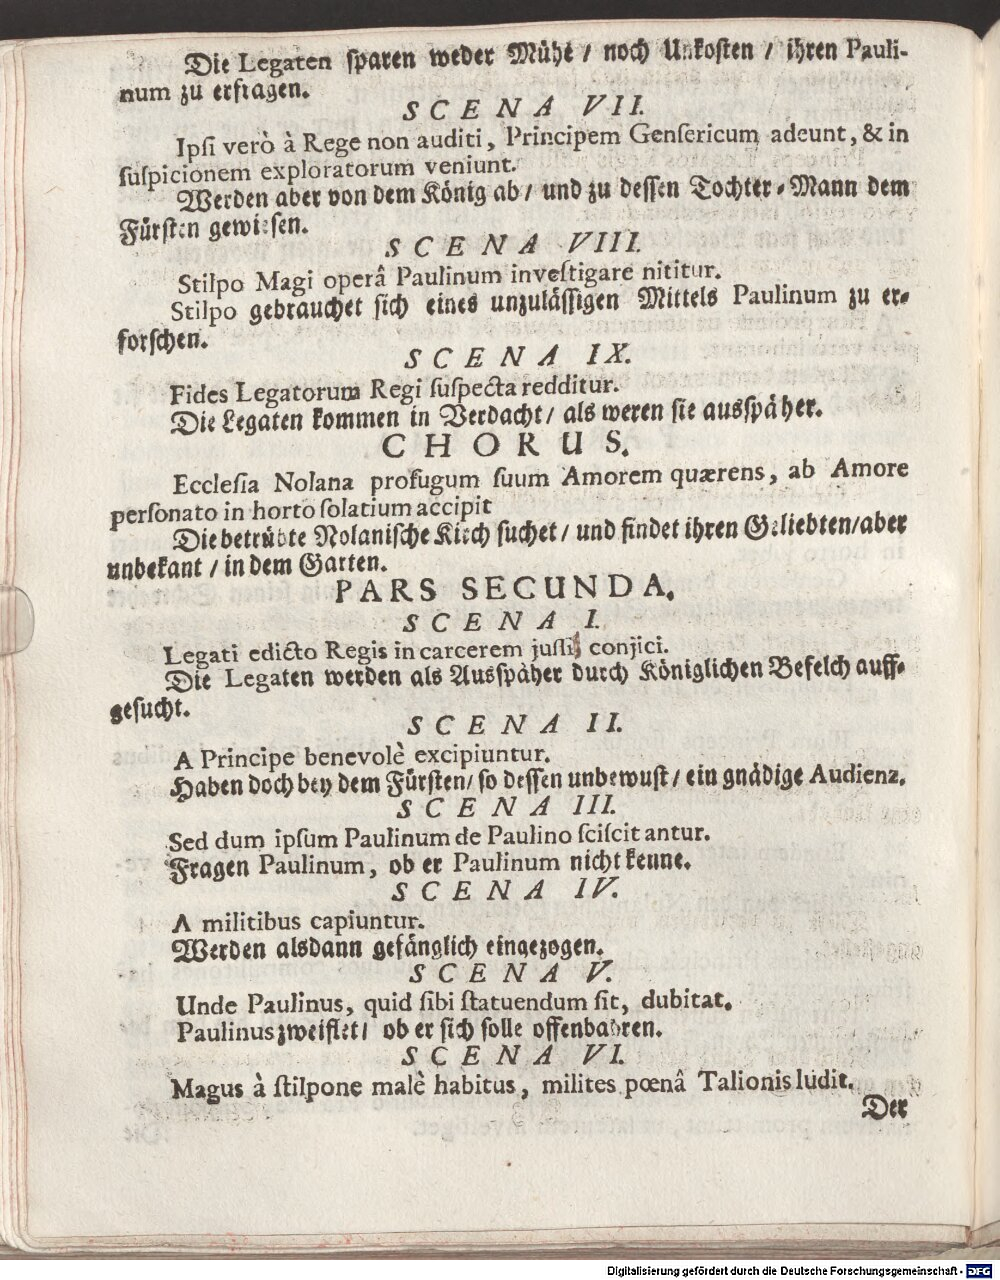 Die Legaten ſparen weder Mühe / noch Unkoſten / ihren Pauli-
num zu erfragen.
SCENA VII.
Ipſi verò à Rege non auditi, Principem Genſericum adeunt, & in
ſuſpicionem exploratorum veniunt.
Werden aber von dem König ab / und zu deſſen Tochter-Mann dem
Fürſten gewieſen.
SCENA VIII.
Stilpo Magi operâ Paulinum inveſtigare nititur.
Stilpo gebrauchet ſich eines unzuläſſigen Mittels Paulinum zu er-
forſchen.
SCENA IX.
Fides Legatorum Regi ſuſpecta redditur.
Die Legaten kommen in Verdacht / als weren ſie ausſpäher.
CHORUS.
Eccleſia Nolana profugum ſuum Amorem quærens, ab Amore
perſonato in horto ſolatium accipit
Die betrübte Nolaniſche Kirch ſuchet / und findet ihren Geliebten / aber
unbekant / in dem Garten.
PARS SECUNDA.
SCENA I.
Legati edicto Regis in carcerem juſſi conjici.
Die Legaten werden als Ausſpäher durch Königlichen Befelch auff-
geſucht.
SCENA II.
A Principe benevolè excipiuntur.
Haben doch bey dem Fürſten / ſo deſſen unbewuſt / ein gnädige Audienz.
SCENA III.
Sed dum ipſum Paulinum de Paulino ſciſcitantur.
Fragen Paulinum, ob er Paulinum nicht kenne.
SCENA IV.
A militibus capiuntur.
Werden alsdann gefänglich eingezogen.
SCENA V.
Unde Paulinus, quid ſibi ſtatuendum ſit, dubitat.
Paulinus zweiflet / ob er ſich ſolle offenbahren.
SCENA VI.
Magus à ſtilpone malè habitus, milites pœnâ Talionis ludit.
Der
Digitalisierung gefördert durch die Deutsche Forschungsgemeinschaft - DFG